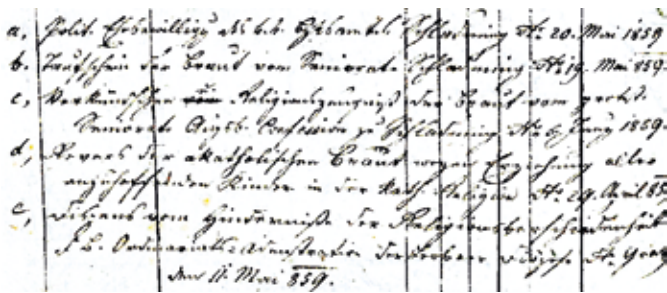 a, Polit. Ehebewilligg des k.k. Bezirksamtes Schladming dto. 20. Mai 1859
b. Taufschein der Braut vom Seniorat Schladming dto. 19. Mai 859.
c, Verkündschein Religionszeugniß der Braut vom protest.
Seniorate Augsb. Confession zu Schladming dto. 6. Juny 1859.
d, Revers der akatholischen Braut wegen Erziehung aller
anzuhoffenden Kinder in der kath. Religion dto. 29. April 859
e, Dispens vom Hinderniße der Religionsverschiedenheit
F. B. Ordinariats Seckauer Diözese dto. Graz
den 11. Mai 859.